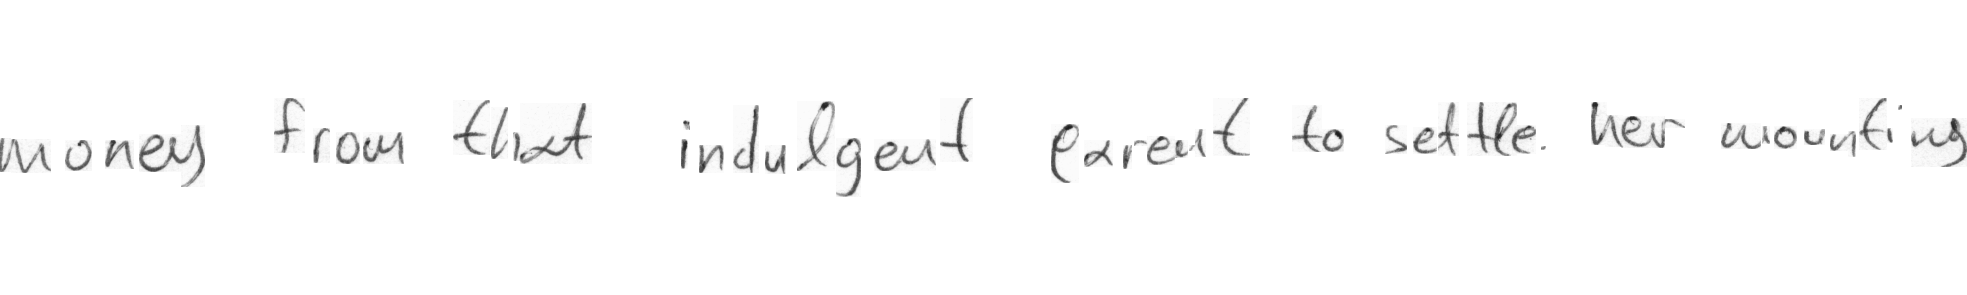 money from that indulgent parent to settle. her mounting